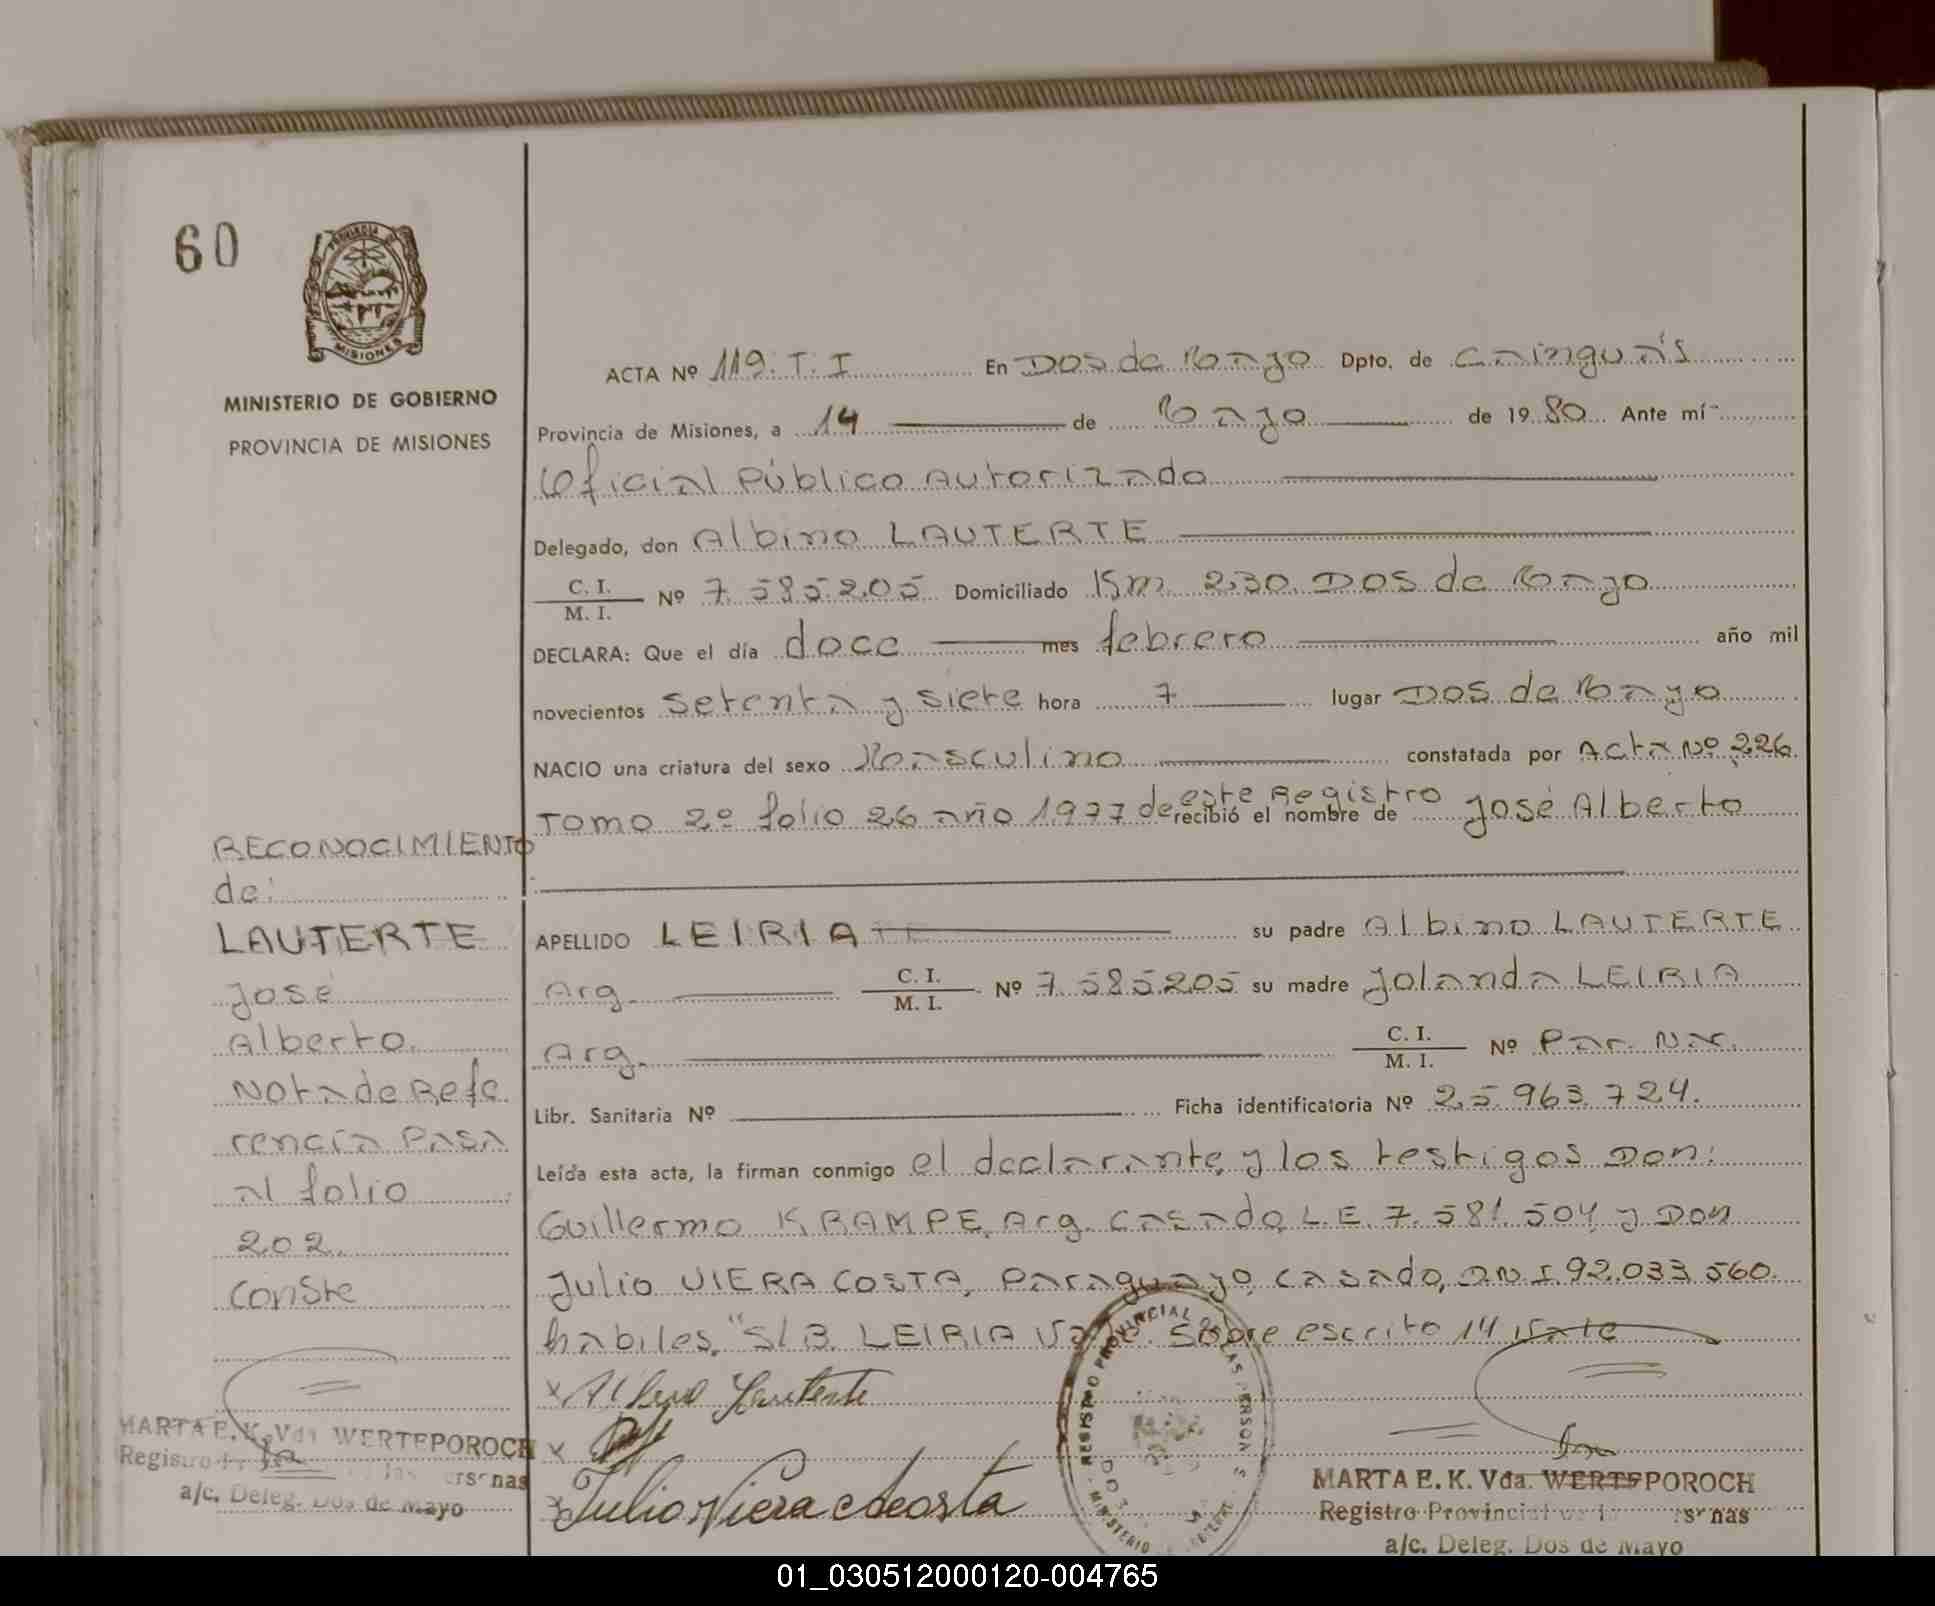 60
PROVINCIA DE
MISIONES
MINISTERIO DE GOBIERNO
PROVINCIA DE MISIONES
ACTA Nº 119. T. I En Dos de Mayo Dpto. de Cainguás
Provincia de Misiones, a 14 de Mayo de 1980 Ante mí
Oficial Público Autorizado
Delegado, don Albino LAUTERTE
C. I.
M. I. Nº 7.585.205 Domiciliado Km 230. Dos de Mayo
DECLARA: Que el día doce mes febrero año mil
novecientos setenta y siete hora 7 lugar Dos de Mayo
NACIO una criatura del sexo Masculino constatada por Acta Nº 226
Tomo 2º folio 26 año 1977 de este Registro recibió el nombre de José Alberto
APELLIDO LEIRIA su padre Albino LAUTERTE
Arg. C. I.
M. I. Nº 7.585.205 su madre Jolanda LEIRIA
Arg. C. I.
M. I. Nº Par. Nac.
Libr. Sanitaria Nº Ficha identificatoria Nº 25.963.724.
Leída esta acta, la firman conmigo el declarante y los testigos Don:
Guillermo KRAMPE, Arg. Casado, L.E. 7.581.504 y Don
Julio VIERA COSTA, Paraguayo, casado, DNI 92.033.560.
habiles. "S/B. LEIRIA Vale. Sobre escrito 14 vale
RECONOCIMIENTO
de:
LAUTERTE
José
Alberto.
Nota de Refe
rencia Pasa
al folio
202.
Conste
Albino Lauterte
Julio Viera Acosta
REGISTRO PROVINCIAL DE LAS PERSONAS
MINISTERIO
MARTA E. K. Vda. WERTEPOROCH
Registro Provincial de las Personas
a/c. Deleg. Dos de Mayo
MARTA E. K. Vda. WERTEPOROCH
Registro Provincial de las Personas
a/c. Deleg. Dos de Mayo
01_030512000120-004765